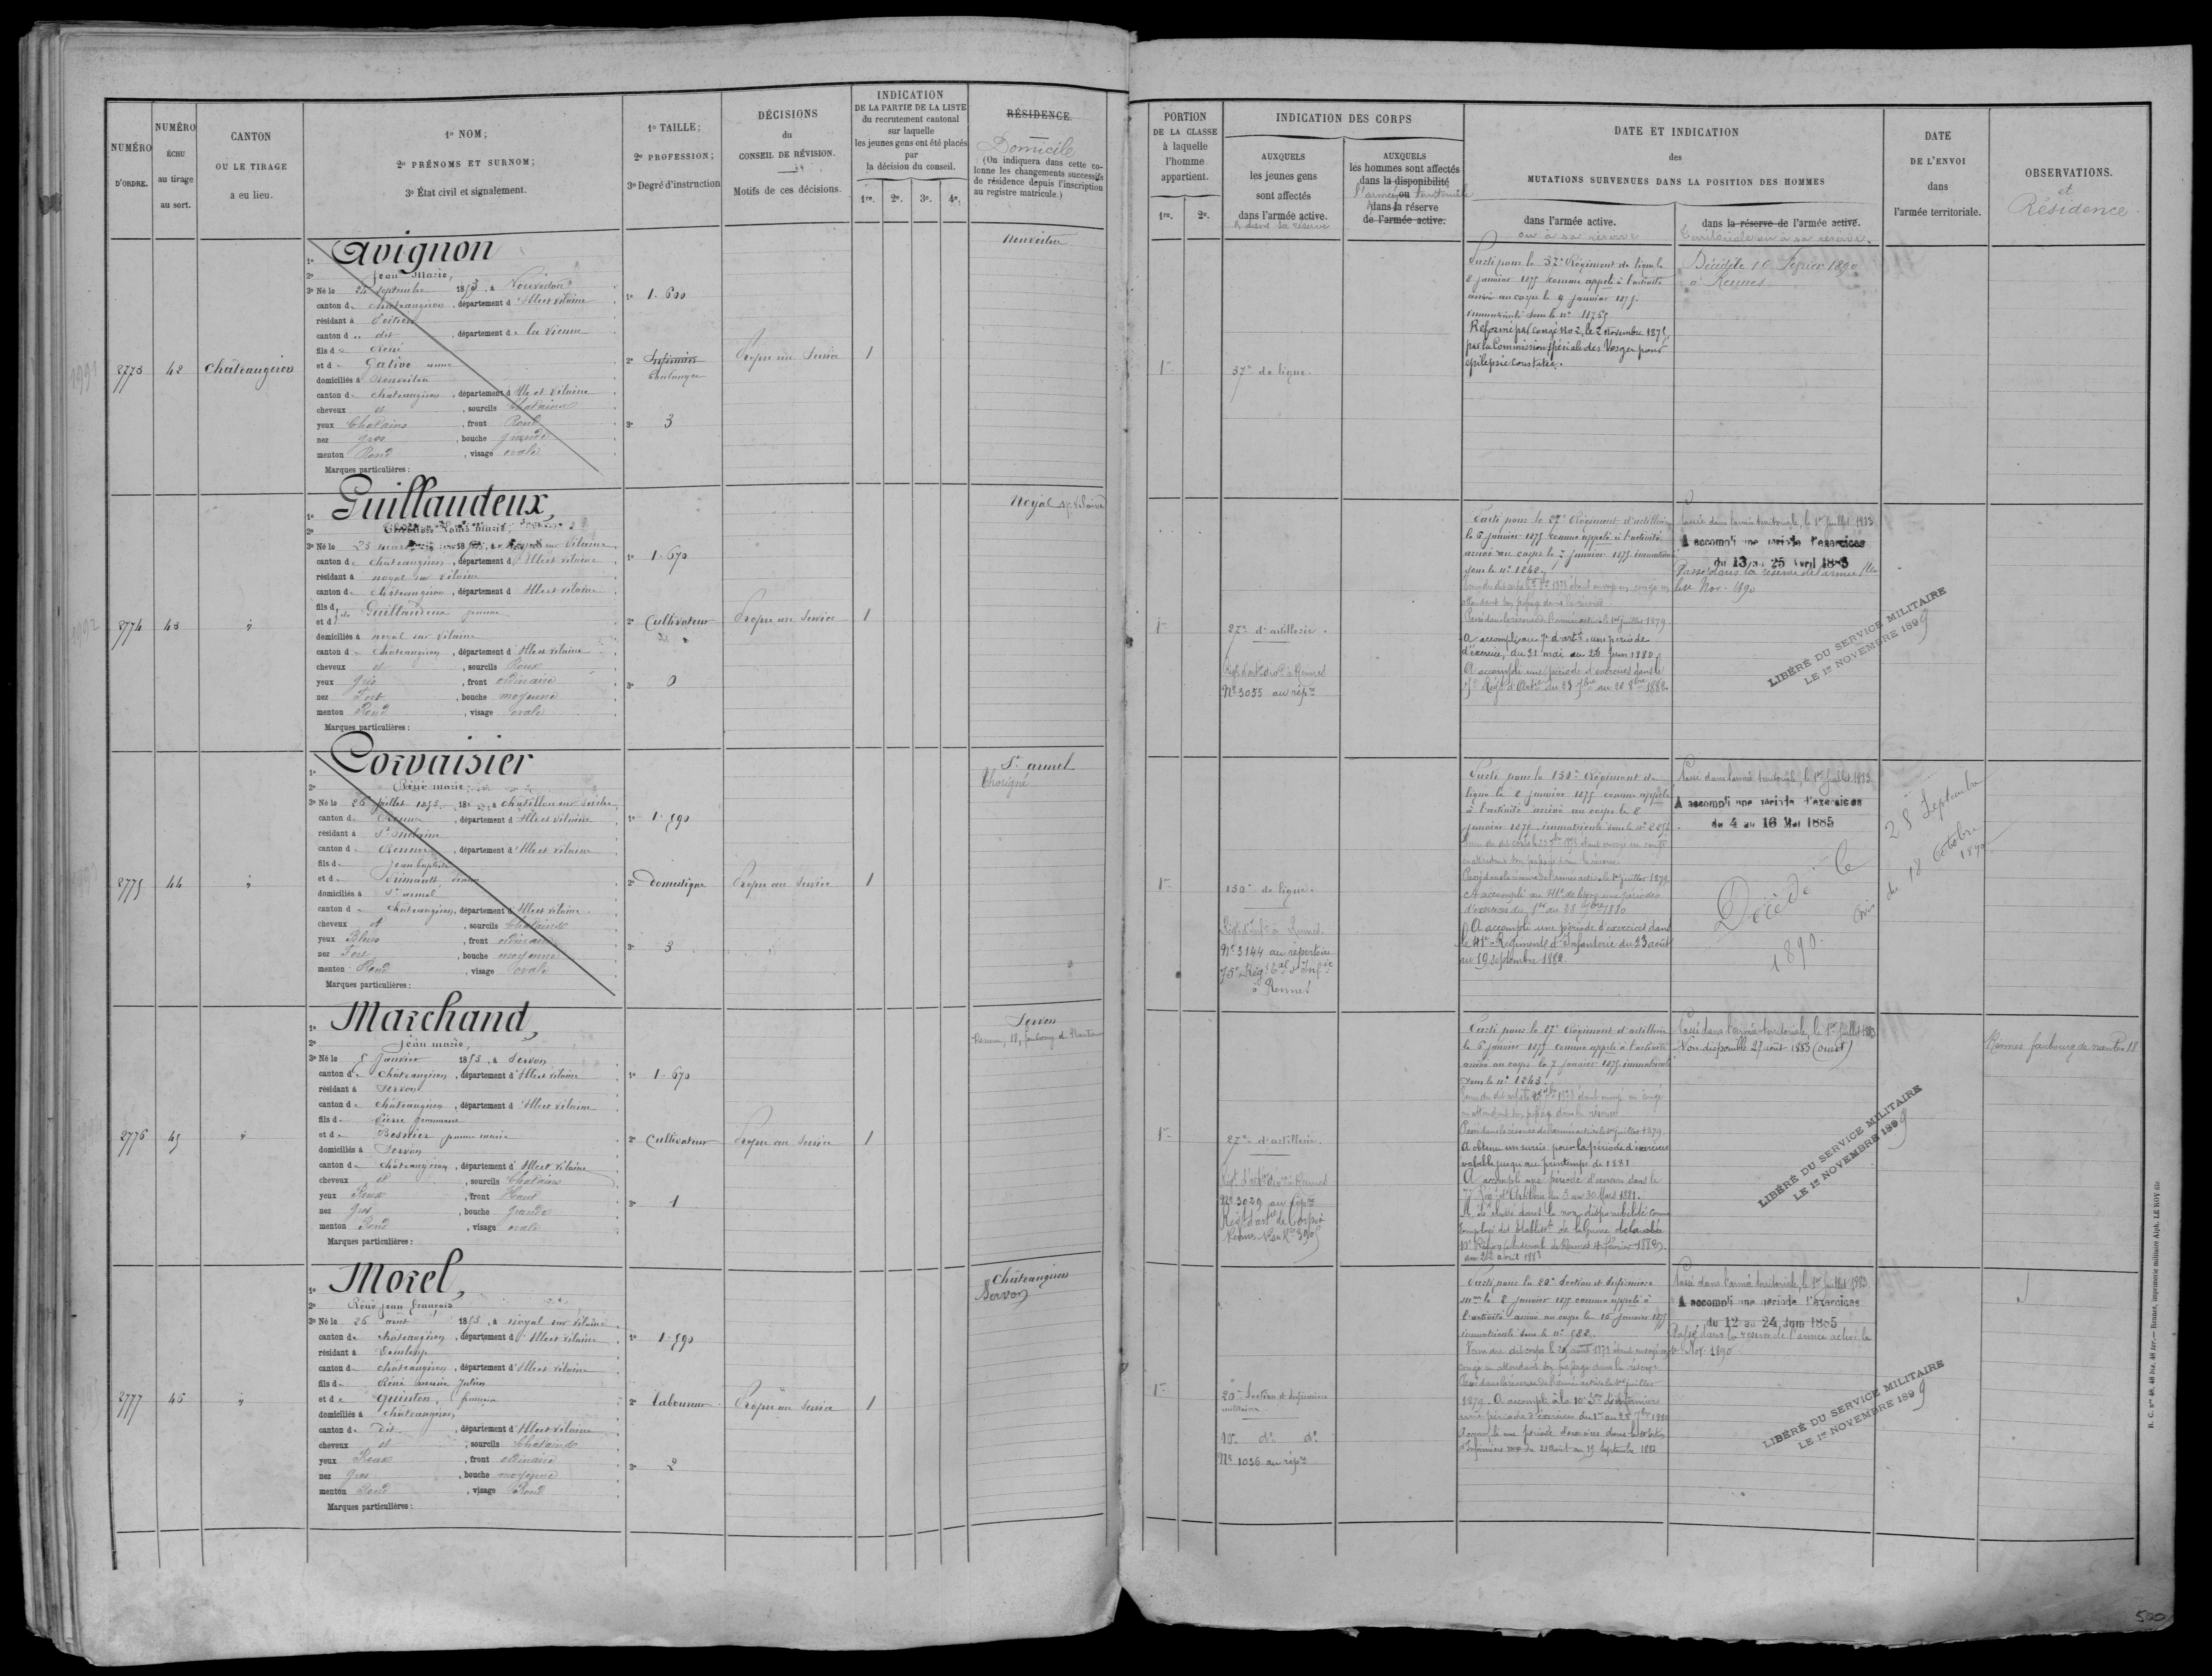 NUMÉRO
D'ORDRE.
NUMÉRO
ÉCHU
au tirage
au sort.
CANTON
OU LE TIRAGE
a eu lieu.
1º NOM;
2º PRÉNOMS ET SURNOM;
3º État civil et signalement.
1º TAILLE;
2º PROFESSION;
3º Degré d'instruction
DÉCISIONS
du
CONSEIL DE RÉVISION.
Motifs de ces décisions.
INDICATION
DE LA PARTIE DE LA LISTE
du recrutement cantonal
sur laquelle
les jeunes gens ont été placés
par
la décision du conseil.
1re. 2e. 3e. 4e.
RÉSIDENCE.
Domicile
(On indiquera dans cette co-
lonne les changements successifs
de résidence depuis l'inscription
au registre matricule.)
2773
42
Châteaugiron
1º Avignon
2º Jean Marie,
3º Né le 24 septembre 1853, à Nouvoitou
canton de Châteaugiron, département d'Ille et Vilaine
résidant à Poitiers
canton d dit, département de la Vienne
fils de René
et de Gative
domiciliés à Nouvoitou
canton de Châteaugiron, département d'Ille et Vilaine
cheveux et, sourcils Chatains
yeux Chatains, front Rond
nez gros, bouche grande
menton Rond, visage ovale
Marques particulières:
1º 1.600
2º Infirmier
boulanger
3º 3
Propre au Service
1
Nouvoitou
2774
43
"
1º Guillaudeux,
2º Louis Marie,
3º Né le 23 mars sur Vilaine
canton de Châteaugiron, département d'Ille et Vilaine
résidant à noyal sur Vilaine
canton de Châteaugiron, département d'Ille et Vilaine
fils d
et d de Guillaudeux Jeanne
domiciliés à noyal sur Vilaine
canton de Châteaugiron, département d'Ille et Vilaine
cheveux et, sourcils Roux
yeux Gris, front ordinaire
nez Fort, bouche moyenne
menton Rond, visage ovale
Marques particulières:
1º 1.670
2º Cultivateur
3º 0
Propre au Service
1
Noyal s/ Vilaine
2775
44
"
1º Corvaisier
2º Pierre marie
3º Né le 26 juillet 1853, à Chatillon sur Seiche
canton de Rennes, département d'Ille et Vilaine
résidant à St
canton de Rennes, département d'Ille et Vilaine
fils de Jean baptiste
et de Jeanne
domiciliés à St armel
canton de Châteaugiron, département d'Ille et Vilaine
cheveux et, sourcils Chatains
yeux Bleus, front ordinaire
nez Fort, bouche moyenne
menton Rond, visage ovale
Marques particulières:
1º 1.590
2º Domestique
3º 3
Propre au Service
1
St armel
Chorigné
2776
45
"
1º Marchand,
2º Jean marie,
3º Né le 5 Janvier 1853, à Servon
canton de Châteaugiron, département d'Ille et Vilaine
résidant à Servon
canton de Châteaugiron, département d'Ille et Vilaine
fils de Pierre
et de Besnier jeanne marie
domiciliés à Servon
canton de Châteaugiron, département d'Ille et Vilaine
cheveux et, sourcils Chatains
yeux Roux, front Haut
nez Gros, bouche Grande
menton Rond, visage ovale
Marques particulières:
1º 1.670
2º Cultivateur
3º 1
Propre au Service
1
Servon
Rennes, 18, faubourg de Nantes
2777
46
"
1º Morel,
2º René jean François
3º Né le 26 août 1853, à noyal sur Vilaine
canton de Châteaugiron, département d'Ille et Vilaine
résidant à Domloup
canton de Châteaugiron, département d'Ille et Vilaine
fils de René marie Julien
et de Quinton,
domiciliés à Châteaugiron
canton de Dit, département d'Ille et Vilaine
cheveux et, sourcils Chatains
yeux Roux, front ordinaire
nez gros, bouche moyenne
menton Rond, visage Rond
Marques particulières:
1º 1.590
2º Laboureur
3º 2
Propre au Service
1
Châteaugiron
Servon
PORTION
DE LA CLASSE
à laquelle
l'homme
appartient.
1re. 2e.
INDICATION DES CORPS
AUXQUELS
les jeunes gens
sont affectés
dans l'armée active.
et dans sa réserve
AUXQUELS
les hommes sont affectés
dans la disponibilité
ou
l'armée territoriale
dans la réserve
de l'armée active.
DATE ET INDICATION
des
MUTATIONS SURVENUES DANS LA POSITION DES HOMMES
dans l'armée active.
ou à sa réserve
dans la réserve de l'armée active.
territoriale ou à sa réserve.
DATE
DE L'ENVOI
dans
l'armée territoriale.
OBSERVATIONS.
et
Résidence.
1re
37e de ligne.
Parti pour le 37e Régiment de ligne le
8 janvier 1875 comme appelé à l'activité
arrivé au corps le 9 janvier 1875.
immatriculé sous le nº 11765
Réformé par congé No 2, le 2 Novembre 1875,
par la Commission spéciale des Vosges pour
épilepsie constatée.
Décédé le 16 Février 1890
à Rennes
1re
27e d'artillerie.
Régt d'artie à Rennes
Nº 3055 au répre
Parti pour le 27e Régiment d'artillerie
le 6 janvier 1875 comme appelé à l'activité
arrivé au corps le 7 janvier 1875 immatriculé
sous le nº 1242.
attendant son passage dans la réserve
Passé dans la réserve de l'armée active le 1er juillet 1879.
A accompli au 7e d'artie une période
d'exercices, du 31 mai au 26 juin 1880.
A accompli une période d'exercices dans le
7e Régt d'Artie du 23 7bre au 20 8bre 1882
Passé dans l'armée territoriale, le 1er Juillet 1883
A accompli une période d'exercices
du 13 au 25 Avril 1885
Passé dans la réserve de l'armée
le Nov. 1890
LIBÉRÉ DU SERVICE MILITAIRE
LE 1er NOVEMBRE 1899
1re
130e de ligne.
Régt d'Infie à Rennes.
Nº 3144 au répertoire
75e Régt tal d'Infie
à Rennes
Parti pour le 130e Régiment de
ligne le 8 janvier 1875 comme appelé
à l'activité arrivé au corps le 8
janvier 1875, immatriculé sous le nº
en attendant son passage dans la réserve
Passé dans la réserve de l'armée active le 1er juillet 1879.
A accompli au 41e de ligne une période
d'exercices du 1er au 28 7bre 1880
A accompli une période d'exercices dans
le 41e Régiment d'Infanterie du 23 août
au 19 septembre 1882.
Passé dans l'armée territoriale, le 1er Juillet 1883
A accompli une période d'exercices
du 4 au 16 Mai 1885
Décédé le 28 Septembre
1890.
Avis du 18 Octobre
1890
1re
27e d'artillerie.
Régt d'artie à Rennes
Nº 3029 au répre
Régt d'artie de Corps à
Rennes
Parti pour le 27e Régiment d'artillerie
le 6 janvier 1875 comme appelé à l'activité
arrivé au corps le 7 janvier 1875 immatriculé
sous le nº 1243.
en attendant son passage dans la réserve
Passé dans la réserve de l'armée active le 1er juillet 1879.
A obtenu un sursis pour la période d'exercices
valable jusqu'au printemps de 1881
A accompli une période d'exercices dans le
7e Régt d'Artillerie du 3 au 30 Mars 1881.
A été classé dans la non-disponibilité comme
employé des
au 22 avril 1883
Passé dans l'armée territoriale, le 1er Juillet 1883
Non disponible 27 août 1883 (ouest)
LIBÉRÉ DU SERVICE MILITAIRE
LE 1er NOVEMBRE 1899
Rennes faubourg de nantes 18
1re
20e Section d'Infirmiers
militaires
10e do do
Nº 1036 au répre
Parti pour la 20e Section d'Infirmiers
mres le 8 janvier 1875 comme appelé à
l'activité arrivé au corps le 15 janvier 1875
immatriculé sous le nº 582.
congé en attendant son passage dans la réserve
Passé dans la réserve de l'armée active le 1er juillet
1879. A accompli à la 10e Son d'Infirmiers
une période d'exercices du 1er au 28 7bre 1880
Accompli une période d'exercices dans la section
d'Infirmiers du 21 août au 19 Septembre 1882
Passé dans l'armée territoriale, le 1er Juillet 1883
A accompli une période d'exercices
du 12 au 24 Juin 1885
Passé dans la réserve de l'armée active le
Nov. 1890
LIBÉRÉ DU SERVICE MILITAIRE
LE 1er NOVEMBRE 1899
R. C. nos 48, 48 bis, 48 ter. — Rennes, imprimerie militaire Alph. LE ROY fils
500